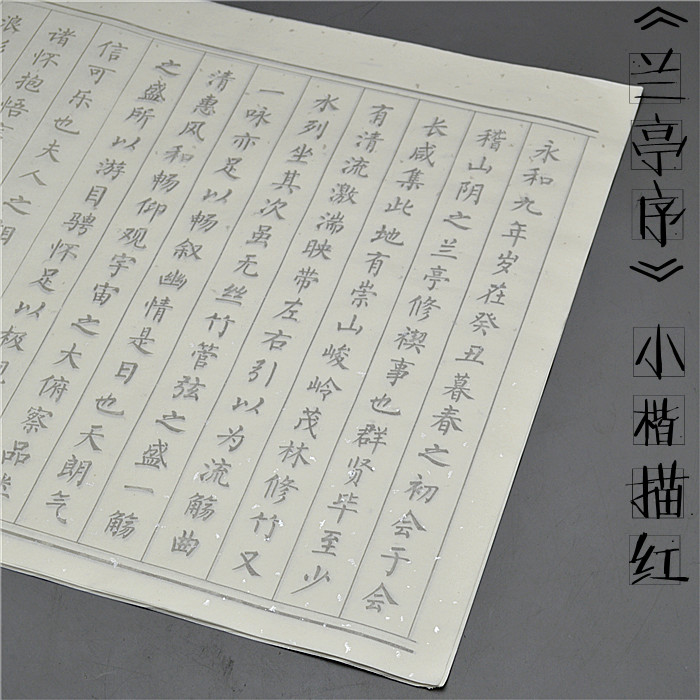 《兰亭序》小楷描红
永和九年岁在癸丑暮春之初会于会
稽山阴之兰亭修禊事也群贤毕至少
长咸集此地有崇山峻岭茂林修竹又
有清流激湍映带左右引以为流觞曲
水列坐其次虽无丝竹管弦之盛一觞
一咏亦足以畅叙幽情是日也天朗气
清惠风和畅仰观宇宙之大俯察品类
之盛所以游目骋怀足以极视
信可乐也夫人之相
诸怀抱悟言
浪